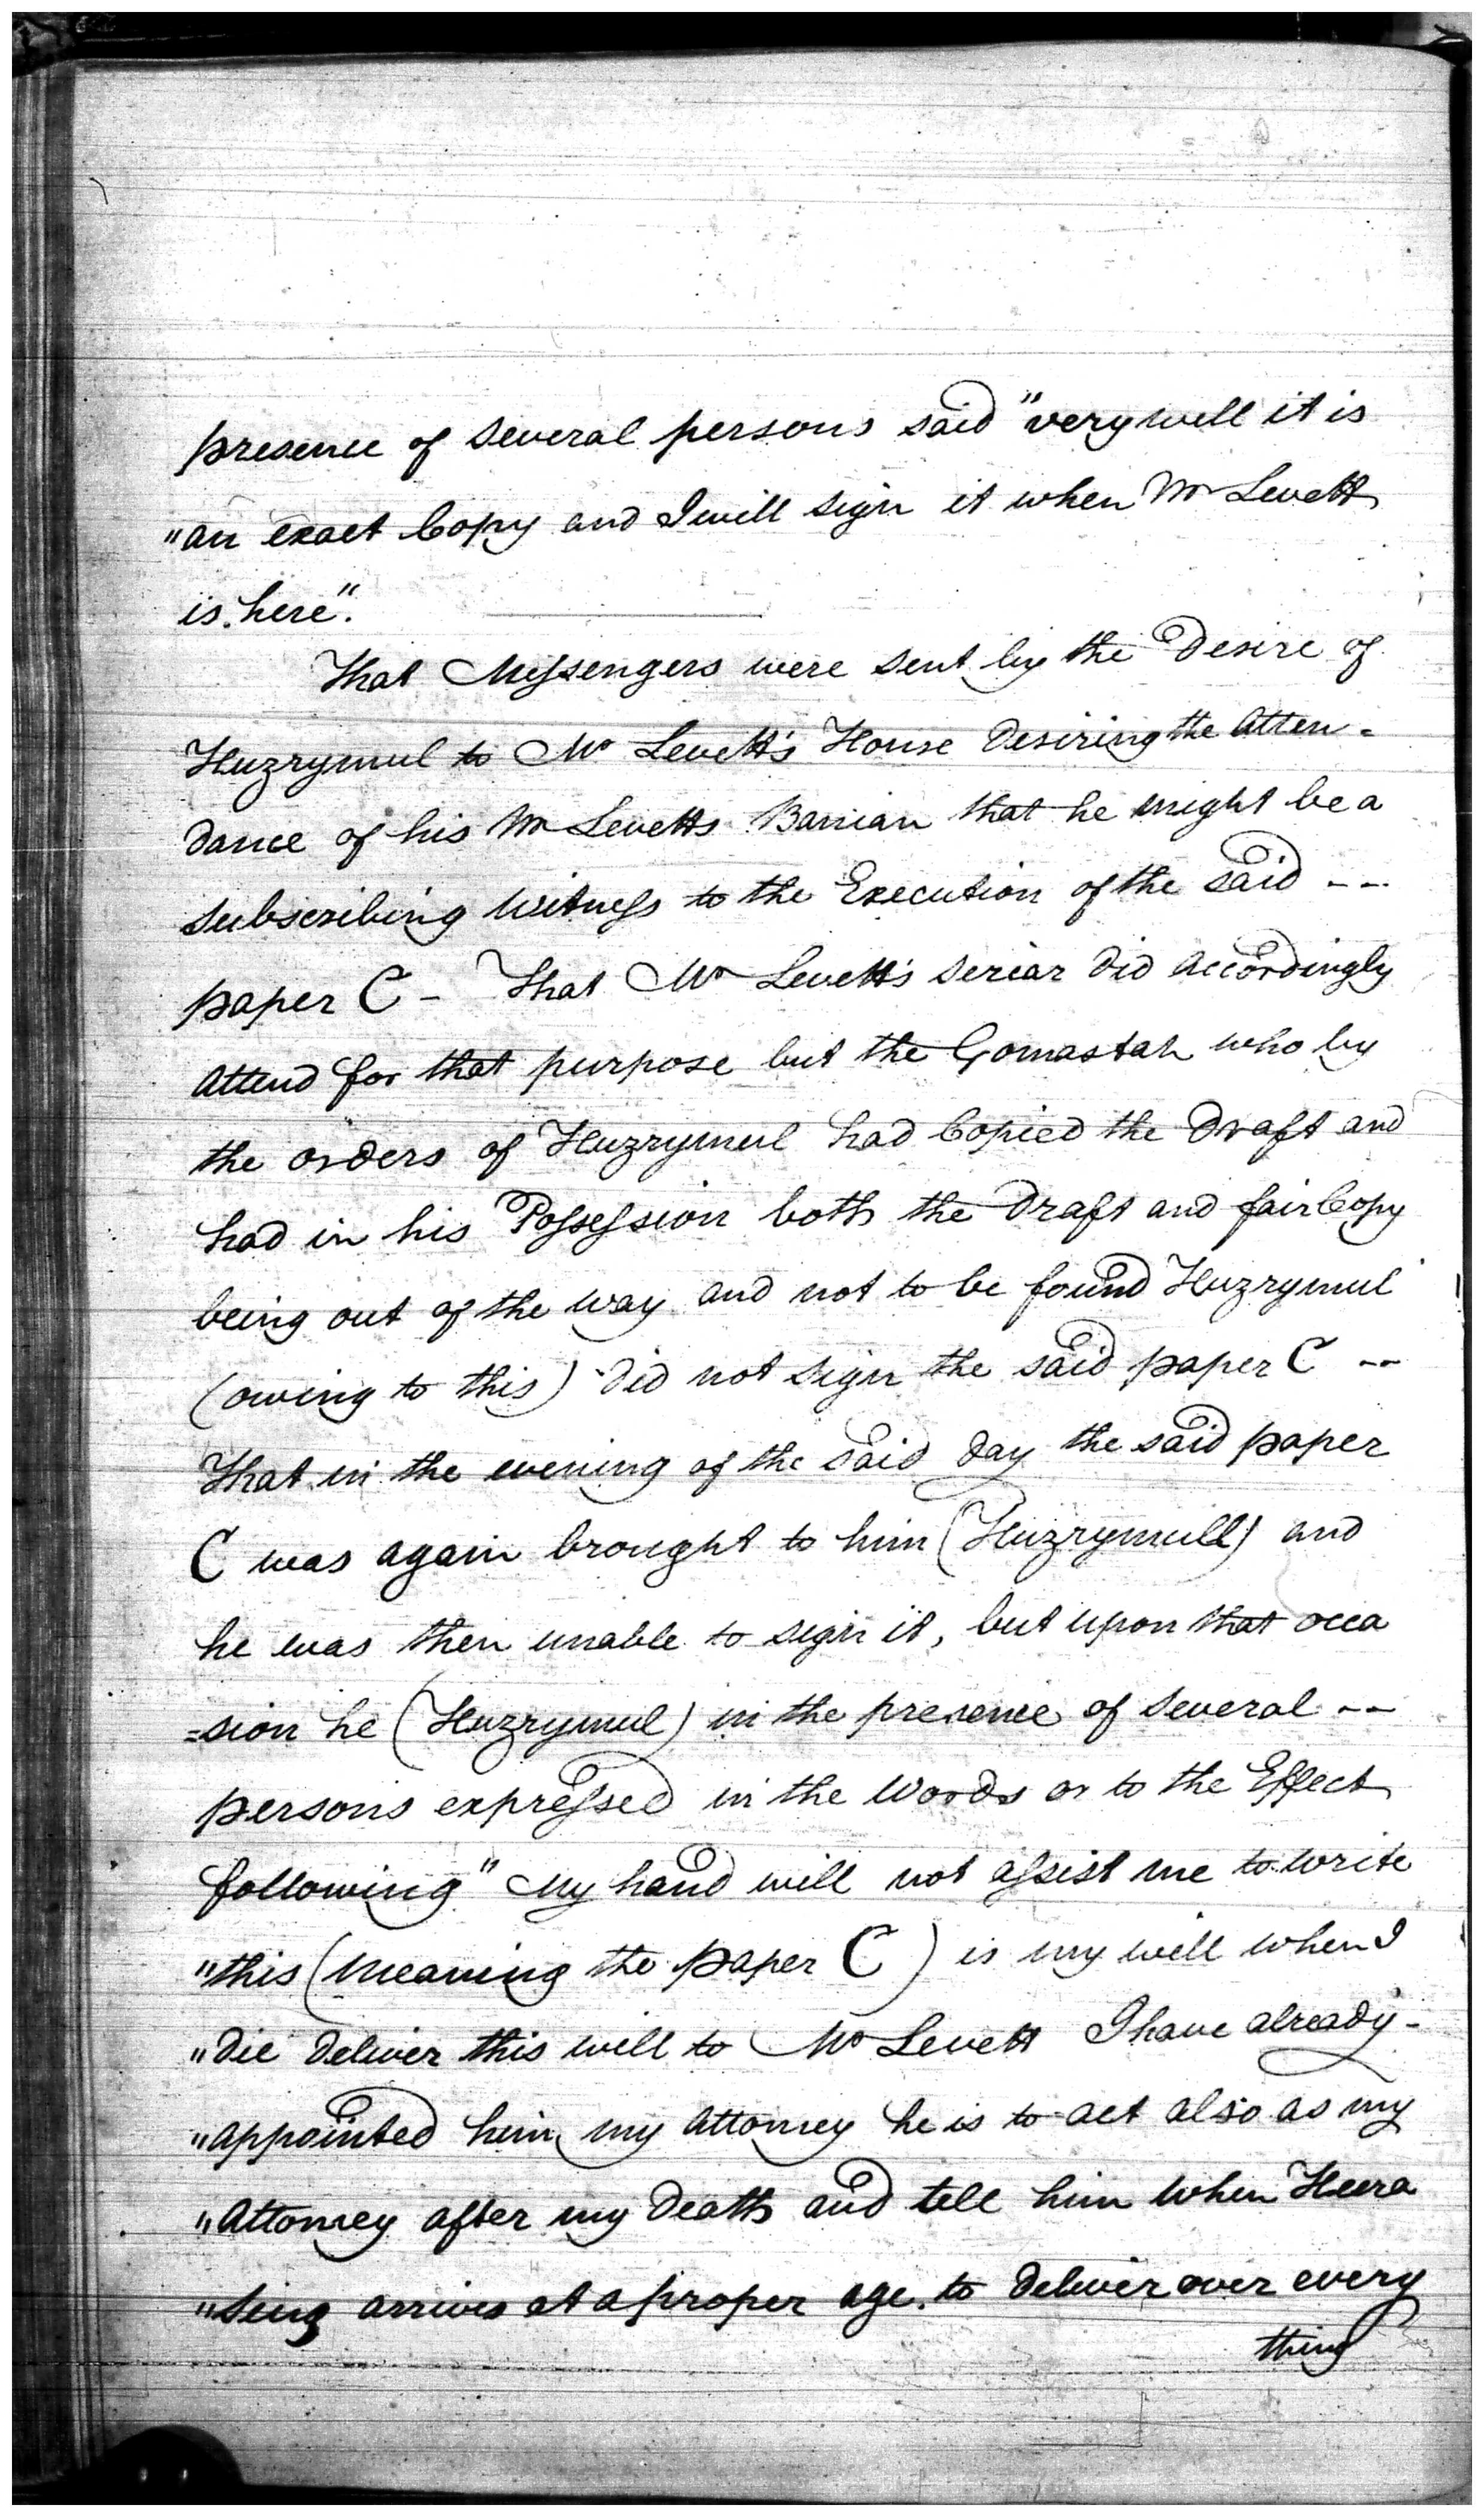 presence of several persons said "very well it is
"an exact Copy and I will sign it when Mr Levett
is here".
That Messengers were sent by the Desire of
Huzrymul to Mr Levett's House Desiring the Atten-
dance of his Mr Levetts Banian that he might be a
subscribing Witness to the Execution of the said --
paper C - That Mr Levett's Sercar did accordingly
Attend for that purpose but the Gomastah who by
the orders of Huzrymul had Copied the Draft and
had in his Possession both the Draft and fair Copy
being out of the way and not to be found Huzrymul
(owing to this) did not sign the said paper C --
That in the evening of the said day the said paper
C was again brought to him (Huzrymull) and
he was then unable to sign it, but upon that occa
=sion he (Huzrymul) in the presence of several --
persons expressed in the Words or to the Effect
following "My hand will not assist me to write
"this (meaning the paper C) is my will when I
"die deliver this will to Mr Levett I have already -
"appointed him my Attorney he is to act also as my
"Attorney after my Death and tell him when Heera
"Sing arrives at a proper age to deliver over every
thing